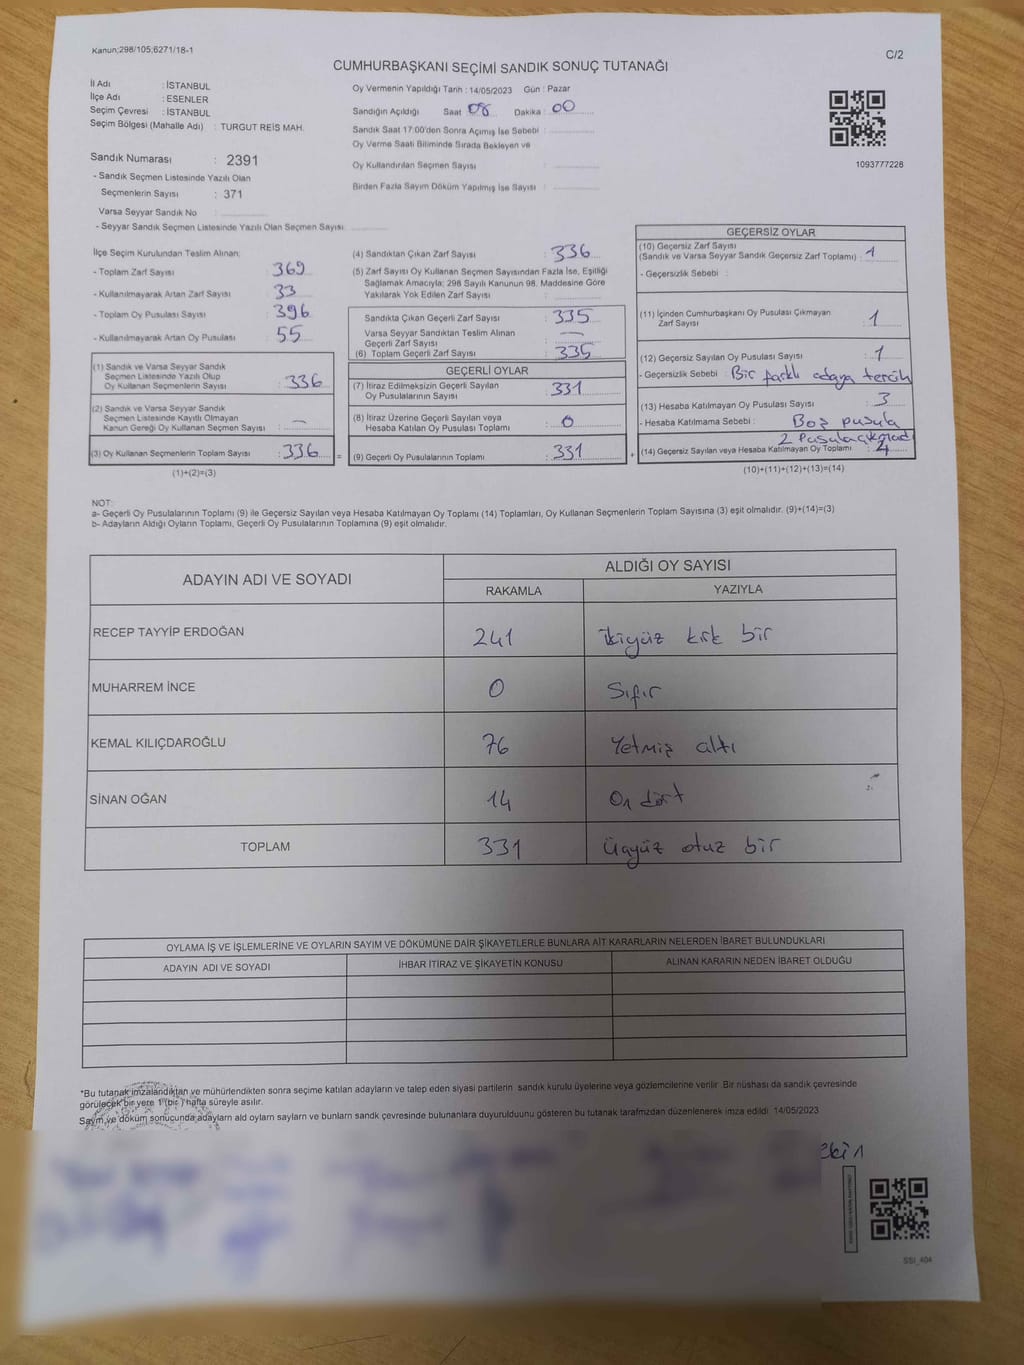 Kanun;298/105;6271/18-1
C/2
CUMHURBAŞKANI SEÇİMİ SANDIK SONUÇ TUTANAĞI
İl Adı : İSTANBUL
İlçe Adı : ESENLER
Seçim Çevresi : İSTANBUL
Seçim Bölgesi (Mahalle Adı) : TURGUT REİS MAH.
Sandık Numarası : 2391
- Sandık Seçmen Listesinde Yazılı Olan
Seçmenlerin Sayısı : 371
Varsa Seyyar Sandık No :
- Seyyar Sandık Seçmen Listesinde Yazılı Olan Seçmen Sayısı:
Oy Vermenin Yapıldığı Tarih : 14/05/2023 Gün : Pazar
Sandığın Açıldığı Saat 08 Dakika : 00
Sandık Saat 17:00'den Sonra Açımış İse Sebebi :
Oy Verme Saati Bitiminde Sırada Bekleyen ve
Oy Kullandırılan Seçmen Sayısı :
Birden Fazla Sayım Döküm Yapılmış İse Sayısı :
1093777228
İlçe Seçim Kurulundan Teslim Alınan;
- Toplam Zarf Sayısı : 369
- Kullanılmayarak Artan Zarf Sayısı : 33
- Toplam Oy Pusulası Sayısı : 396
- Kullanılmayarak Artan Oy Pusulası : 55
(1) Sandık ve Varsa Seyyar Sandık
Seçmen Listesinde Yazılı Olup
Oy Kullanan Seçmenlerin Sayısı : 336
(2) Sandık ve Varsa Seyyar Sandık
Seçmen Listesinde Kayıtlı Olmayan
Kanun Gereği Oy Kullanan Seçmen Sayısı : —
(3) Oy Kullanan Seçmenlerin Toplam Sayısı : 336 =
(1)+(2)=(3)
(4) Sandıktan Çıkan Zarf Sayısı : 336
(5) Zarf Sayısı Oy Kullanan Seçmen Sayısından Fazla İse, Eşitliği
Sağlamak Amacıyla; 298 Sayılı Kanunun 98. Maddesine Göre
Yakılarak Yok Edilen Zarf Sayısı :
Sandıkta Çıkan Geçerli Zarf Sayısı : 335
Varsa Seyyar Sandıktan Teslim Alınan
Geçerli Zarf Sayısı : —
(6) Toplam Geçerli Zarf Sayısı : 335
GEÇERLİ OYLAR
(7) İtiraz Edilmeksizin Geçerli Sayılan
Oy Pusulalarının Sayısı : 331
(8) İtiraz Üzerine Geçerli Sayılan veya
Hesaba Katılan Oy Pusulası Toplamı : 0
(9) Geçerli Oy Pusulalarının Toplamı : 331 +
GEÇERSİZ OYLAR
(10) Geçersiz Zarf Sayısı
(Sandık ve Varsa Seyyar Sandık Geçersiz Zarf Toplamı) : 1
- Geçersizlik Sebebi :
(11) İçinden Cumhurbaşkanı Oy Pusulası Çıkmayan
Zarf Sayısı : 1
(12) Geçersiz Sayılan Oy Pusulası Sayısı : 1
- Geçersizlik Sebebi : Bir farklı adaya tercih
(13) Hesaba Katılmayan Oy Pusulası Sayısı : 3
- Hesaba Katılmama Sebebi : Boş pusula
2 Pusula çıkmad
(14) Geçersiz Sayılan veya Hesaba Katılmayan Oy Toplamı : 4
(10)+(11)+(12)+(13)=(14)
NOT:
a- Geçerli Oy Pusulalarının Toplamı (9) ile Geçersiz Sayılan veya Hesaba Katılmayan Oy Toplamı (14) Toplamları, Oy Kullanan Seçmenlerin Toplam Sayısına (3) eşit olmalıdır. (9)+(14)=(3)
b- Adayların Aldığı Oyların Toplamı, Geçerli Oy Pusulalarının Toplamına (9) eşit olmalıdır.
ADAYIN ADI VE SOYADI
ALDIĞI OY SAYISI
RAKAMLA YAZIYLA
RECEP TAYYİP ERDOĞAN 241 ikiyüz kırk bir
MUHARREM İNCE 0 Sıfır
KEMAL KILIÇDAROĞLU 76 Yetmiş altı
SİNAN OĞAN 14 On dört
TOPLAM 331 Üçyüz otuz bir
OYLAMA İŞ VE İŞLEMLERİNE VE OYLARIN SAYIM VE DÖKÜMÜNE DAİR ŞİKAYETLERLE BUNLARA AİT KARARLARIN NELERDEN İBARET BULUNDUKLARI
ADAYIN ADI VE SOYADI İHBAR İTİRAZ VE ŞİKAYETİN KONUSU ALINAN KARARIN NEDEN İBARET OLDUĞU
*Bu tutanak imzalandıktan ve mühürlendikten sonra seçime katılan adayların ve talep eden siyasi partilerin sandık kurulu üyelerine veya gözlemcilerine verilir. Bir nüshası da sandık çevresinde
görülecek bir yere 1 (bir ) hafta süreyle asılır.
Saym ve döküm sonucunda adaylarn ald oylarn saylarn ve bunlarn sandk çevresinde bulunanlara duyurulduunu gösteren bu tutanak tarafmzdan düzenlenerek imza edildi. 14/05/2023
SSI_404